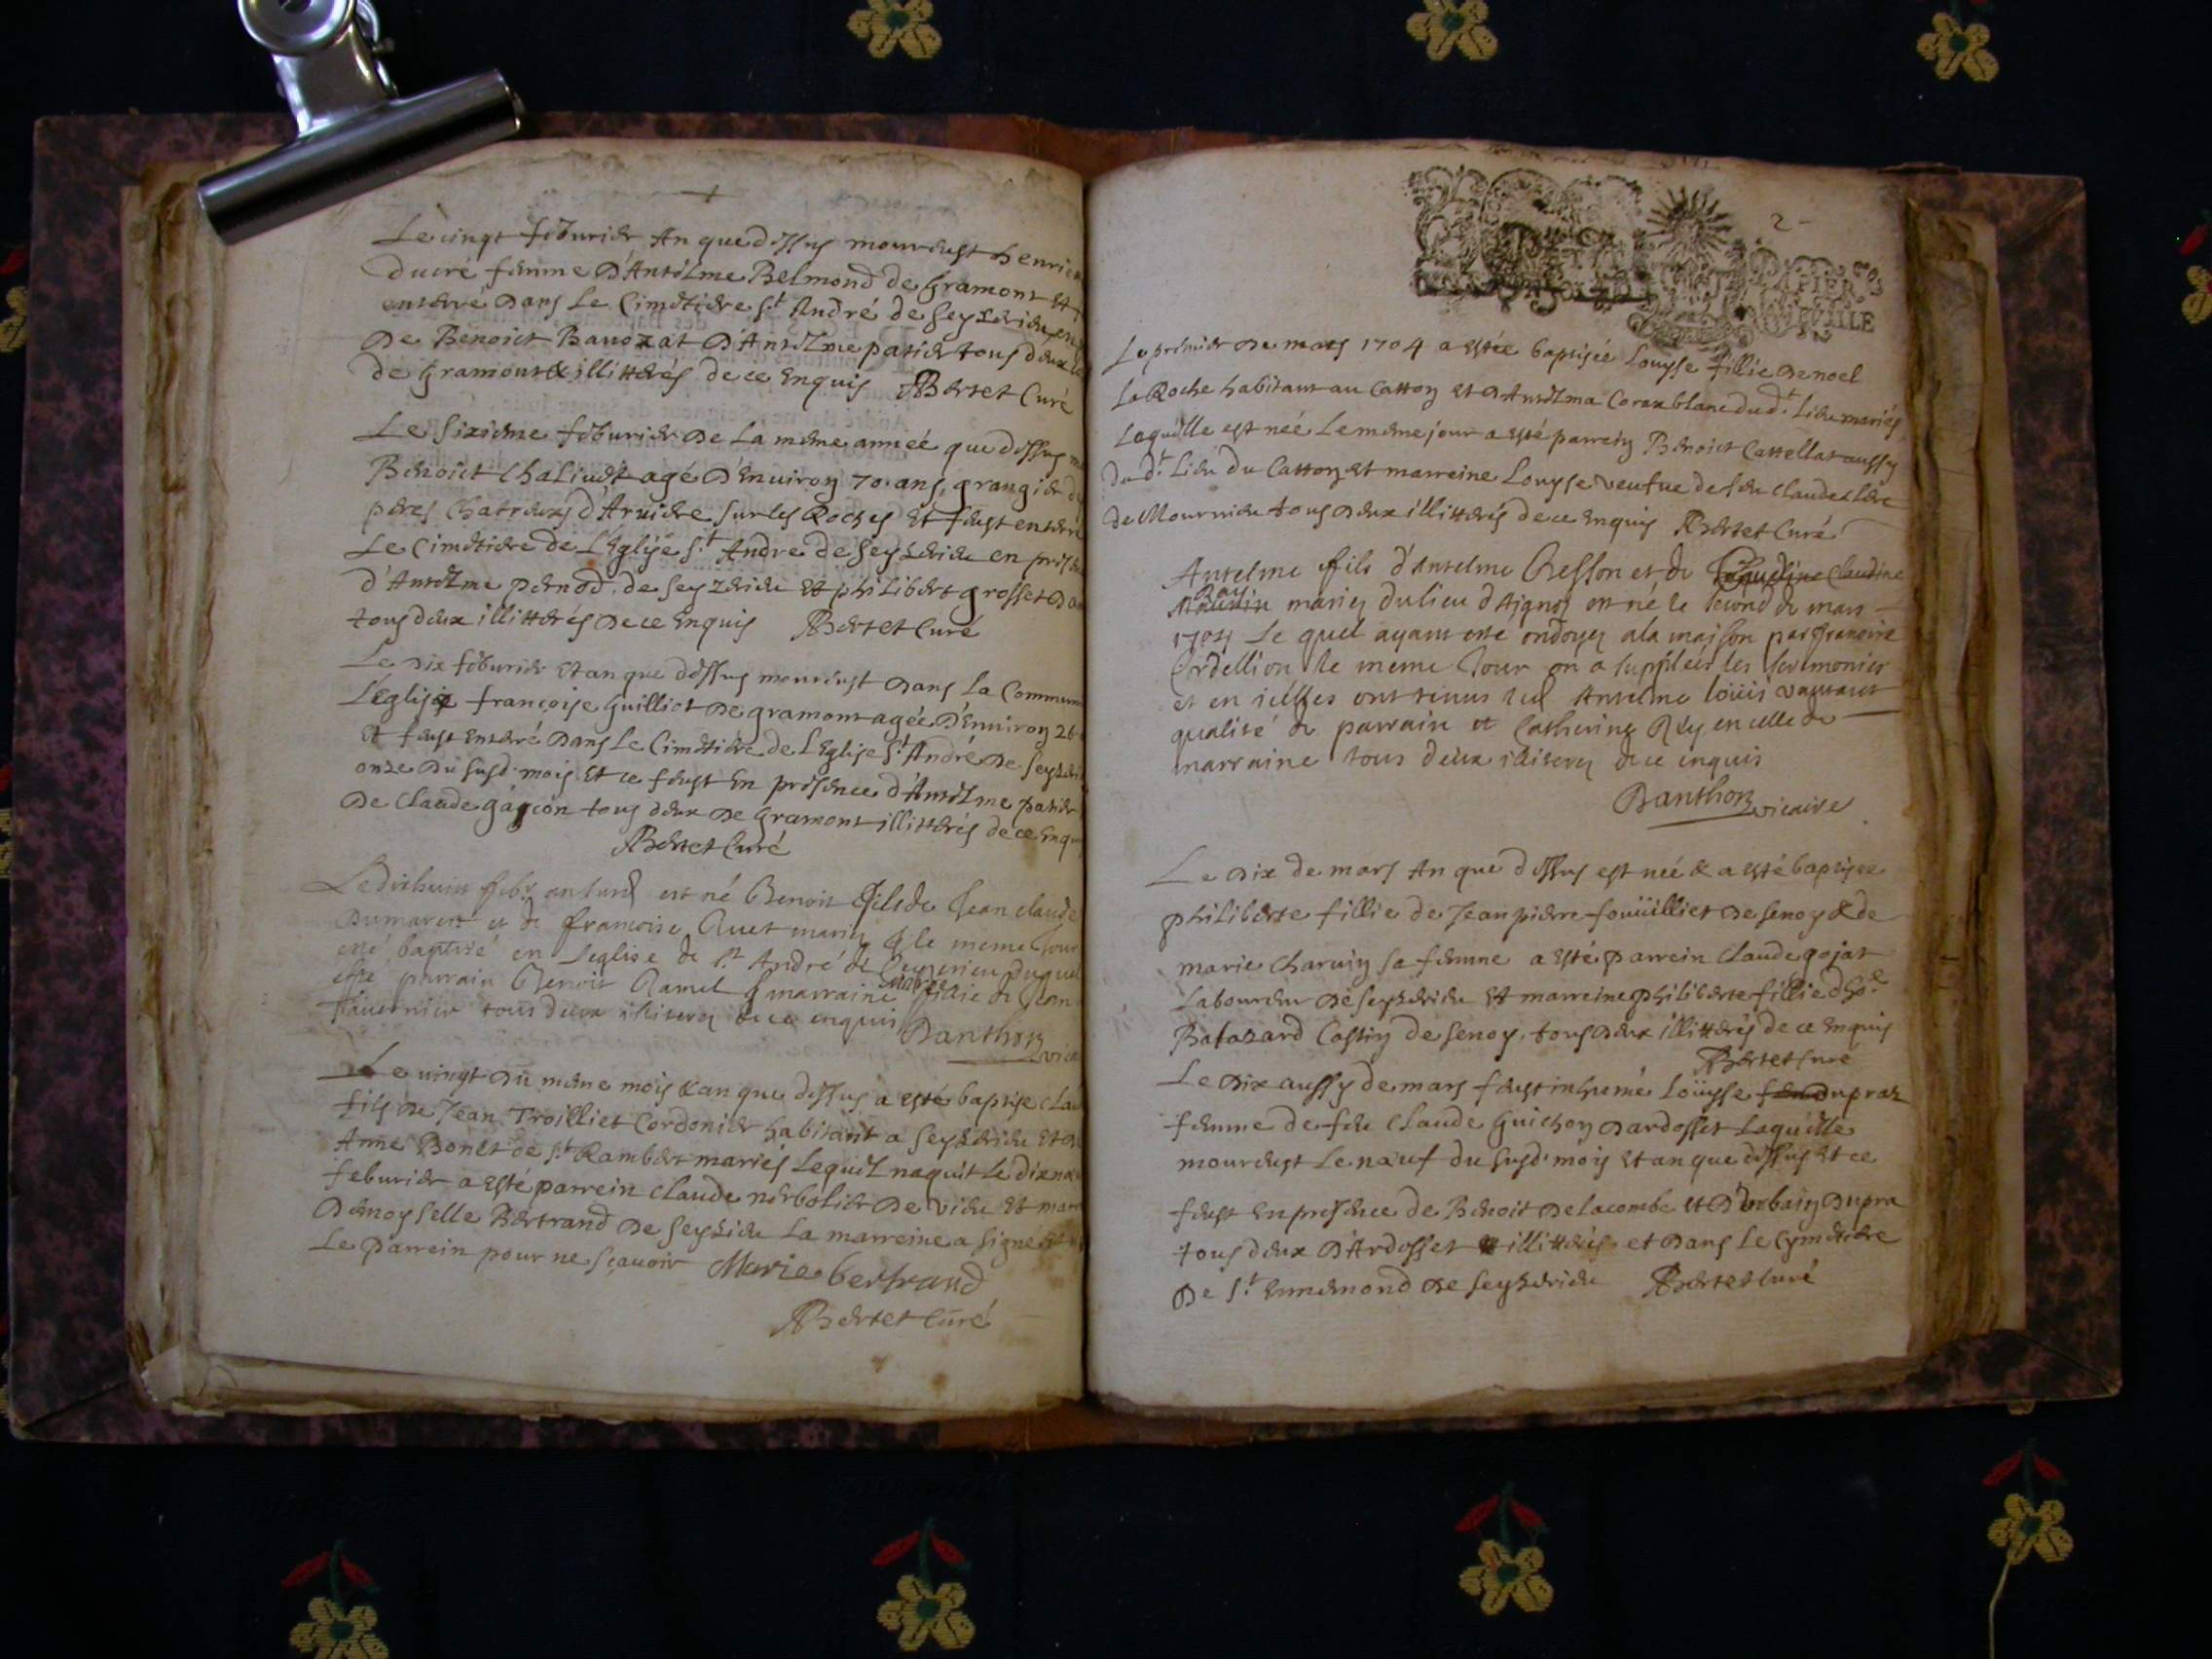 Le cinqt feburier An que dessus mourust henri
ducré femme d'Antelme Belmond de Gramont et
enterré dans le Cimetiere St André de Seyzerieu en
de Benoict Bauozat d'Antelme patier tous deux
de Gramont & illitterés de ce Enquis ABertet Curé
Le sixieme feburier de la meme anneé que dessus
Benoict Chaliudt agé d'Enuiron 70 ans, grangier
peres Chatreux d'Aruiere sur les Roches et feust enterré
Le Cimetiere de L'Eglise St Andre de Seyzerieu en
d'Antelme pernod de Seyzerieu et philibert grosset
tous deux illitterés de ce Enquis ABertet Curé
Le dix feburier et an que dessus mourust dans la Commun
L'eglise françoise Guilliot de gramont agée d'Enuiron 26
et feust Enterré dans le Cimetiere de L'Eglise St André de Seyzeri
onze du susd. mois et ce feust En presence d'Antelme patier
de Claude garçon tous deux de Gramont illitterés de ce Enqu
ABertet Curé
Le dixhuict febr. an susd est né Benoit fils de Jean claude
Dumarest et de francoise Auet mariez & le meme Jour
esté baptisé en l'eglise de St André de Ceyzerieu duquel
esté parrain Benoit Ramel & marraine Marie fillie de
Tauernier tous deux illiterez de ce enquis Danthon
vica
Le vingt du meme mois & an que dessus a esté baptise Clau
fils de Jean Troilliet Cordonier habitant a Seyzerieu et
Anne Bonet de St Rambert mariés Lequel naquit le dixn
feburier a esté parrein Claude nerbolier de Vieu et mar
demoyselle Bertrand de Seyzerieu La marreine a signé et
Le parrein pour ne sçauoir Marie bertrand
ABertet Curé
2
PAPIER
Le premier de mars 1704 a estée baptiseé Louyse fillie de noel
La Roche habitant au Catton et d'Antelma Corax blanc dud.t Lieu mariés
Laquelle est neé Le meme jour a esté parrein Benoict Cattellat aussy
Dud.t Lieu du Catton et marreine Louyse veufue de feu Claude
de Mournieu tous deux illitterés de ce Enquis ABertet Curé
Antelme fils d'Antelme Cresson et de Claudine Claudine
Ray
mariez du lieu d'Aignoz est né le second de mars
1704 Le quel ayant esté ondoyez a la maison par francoise
Cordellion le meme Jour on a suppleés les seremonies
et en icelles ont tenus led Antelme loüis
qualité de parrain et Catherine Rey en celle de
marraine tous deux illiterez de ce enquis
Danthon vicaire
Le dix de mars An que dessus est neé & a esté baptisee
philiberte fillie de Jean pierre foüilliet de Senoy & de
marie Charuin sa femme a esté parrein Claude gojat
Laboureur de Seyzerieu et marreine philiberte fillie d'ho.e
Batazard Castin de Senoy, tous deux illitterés de ce Enquis
ABertet Curé
Le dix aussy de mars feust inhumé Loüyse feu dupraz
femme de feu Claude Guichon d'ardosset Laquelle
mourust Le neuf du susd. mois et an que dessus et ce
feust En presence de Benoit delacombe et d'Vrbain Dupra
tous deux d'Ardosset illitterés et dans Le Cymetiere
De St Ennemond de Seyzerieu ABertet Curé